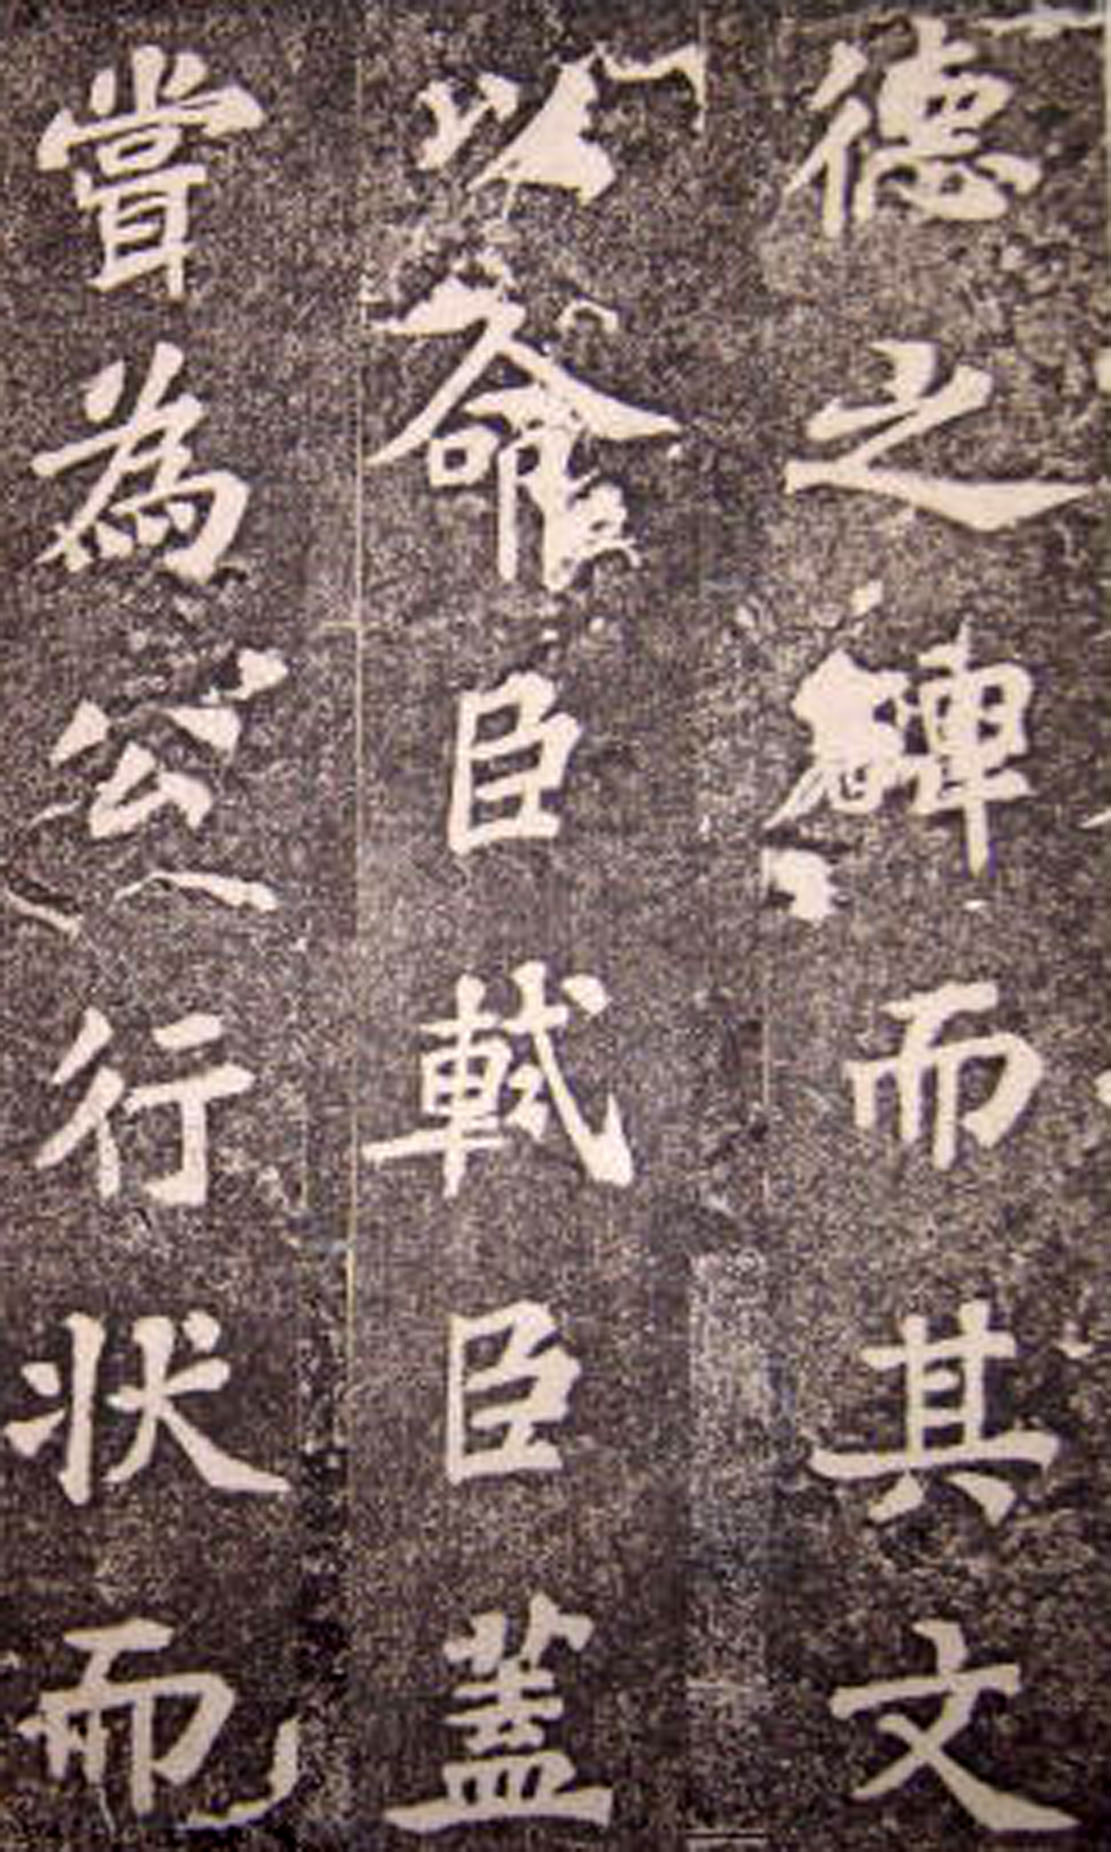 德之碑而其文
以命臣軾臣蓋
嘗為公行狀而